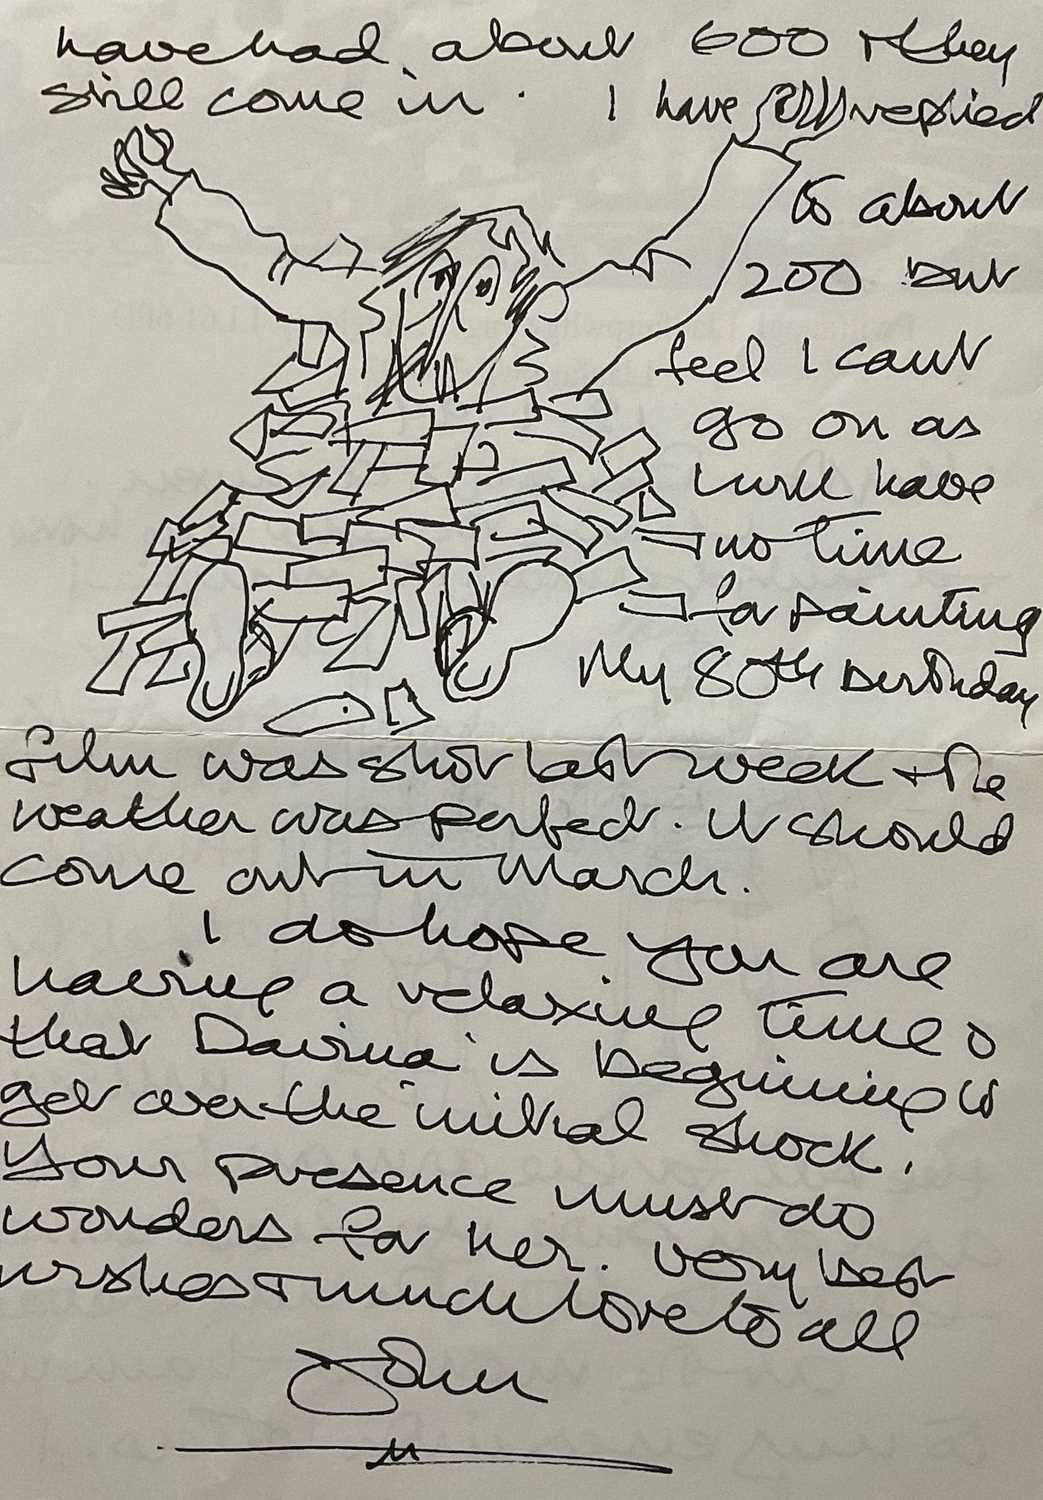 have had about 600 + they
still come in. I have replied
to about
200 but
feel I can't
go on as
I will have
no time
for painting
My 80th birthday
film was shot last week + the
weather was perfect. It should
come out in March.
I do hope you are
having a relaxing time &
that Davina is beginning to
get over the initial shock.
Your presence must do
wonders for her. Very best
wishes + much love to all
John